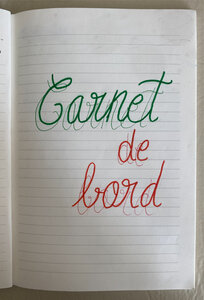 Carnet
de
bord